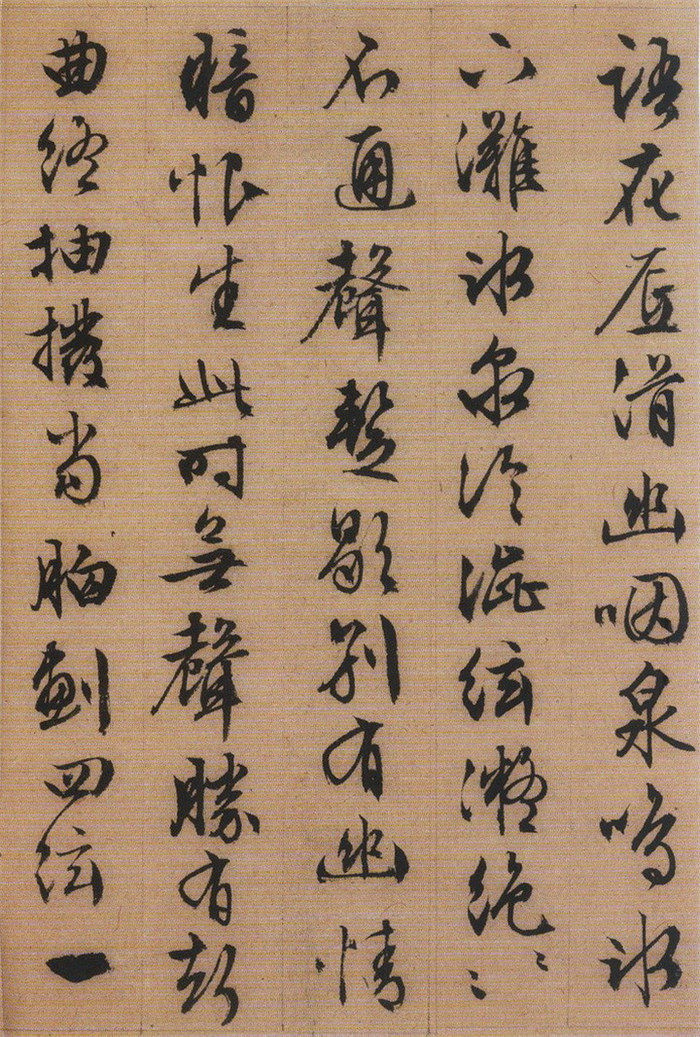 語花底滑幽咽泉鳴冰
下灘冰泉冷澀絃凝絕〻〻
不通聲暫歇別有幽情
暗恨生此時無聲勝有聲
曲終抽撥當胸劃四絃一